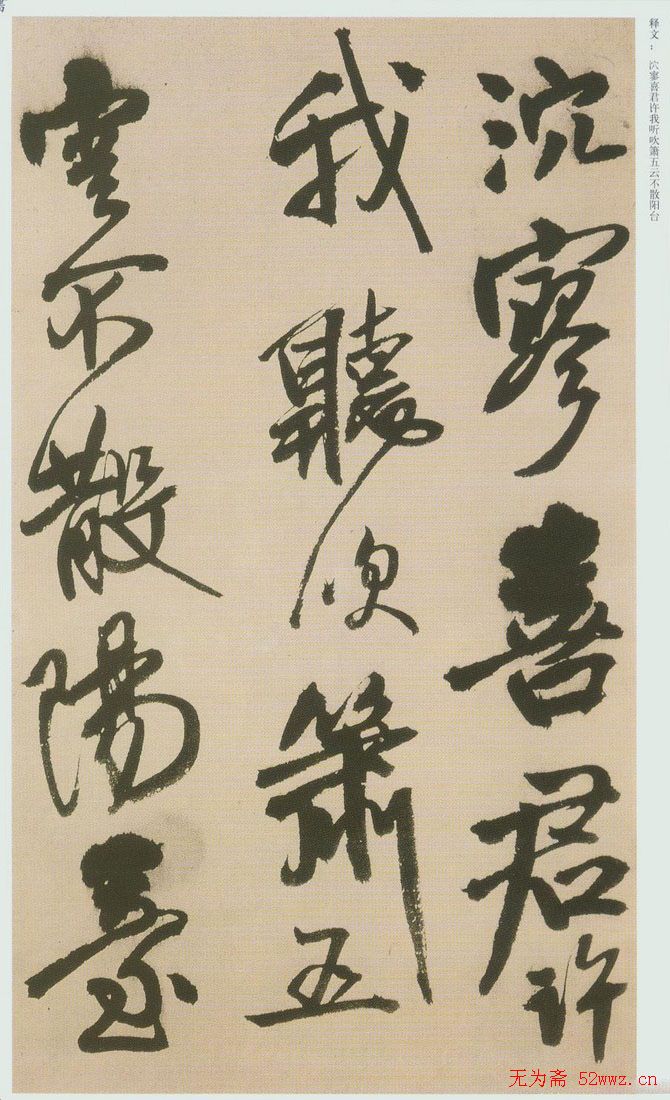 释文：泬寥喜君许我听吹箫五云不散阳台
泬寥喜君許
我聽吹簫五
雲不散陽臺
无为斋 52wwz.cn